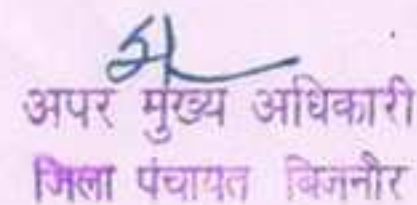 अपर मुख्य अधिकारी
जिला पंचायत बिजनौर